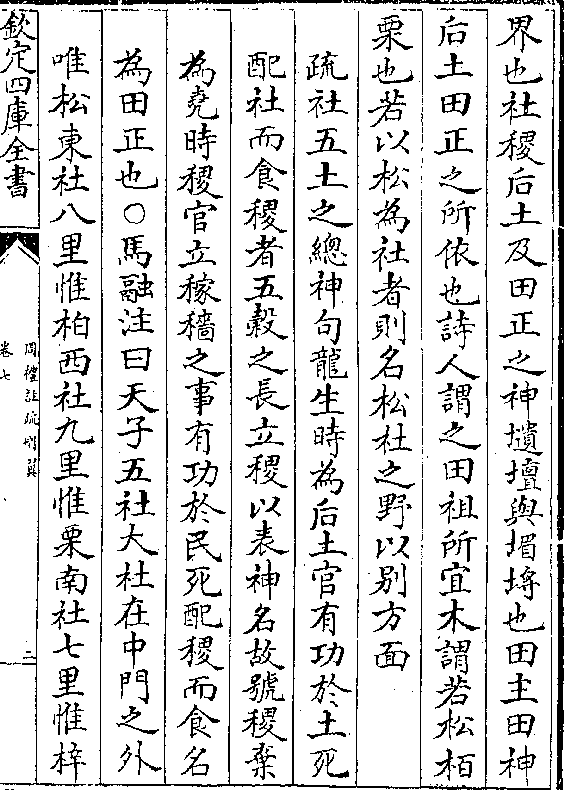 界也社稷后土及田正之神壝壇與堳埒也田主田神
后土田正之所依也詩人謂之田祖所宜木謂若松栢
栗也若以松為社者則名松社之野以别方面
疏社五土之總神句龍生時為后土官有功於土死
配社而食稷者五穀之長立稷以表神名故號稷棄
為堯時稷官立稼穡之事有功於民死配稷而食名
為田正也○馬融注曰天子五社大社在中門之外
唯松東社八里惟柏西社九里惟栗南社七里惟梓
欽定四庫全書
卷七
周禮註疏刪翼
三